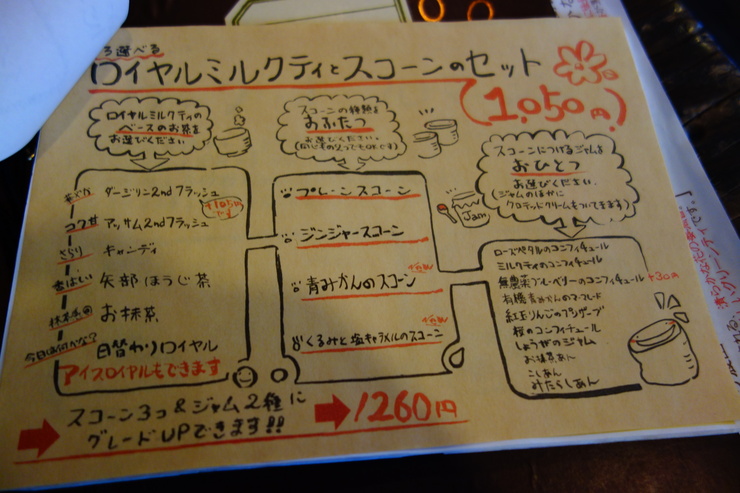 選べる
ロイヤルミルクティとスコーンのセット
(1,050円)
ロイヤルミルクティの
ベースのお茶を
お選びください
スコーンの種類を
おふたつ
お選びください。
スコーンにつけるジャムを
おひとつ
お選びください。
(ジャムのほかに
クロテッドクリームもついてきます)
Jam
ダージリン2ndフラッシュ
+105円
です
コク甘 アッサム2ndフラッシュ
さらり キャンディ
香ばしい 矢部ほうじ茶
お抹茶
今日は何かな? 日替わりロイヤル
アイスロイヤルもできます
プレーンスコーン
ジンジャースコーン
青みかんのスコーン
くるみと塩キャラメルのスコーン
ローズペタルのコンフィチュール
ミルクティのコンフィチュール
無農薬ブルーベリーのコンフィチュール +30円
有機青みかんのマーマレード
紅玉りんごのプリザーブ
桜のコンフィチュール
しょうがのジャム
お抹茶あん
こしあん
みたらしあん
スコーン3つ&ジャム2種に
グレードUPできます!!
1260円